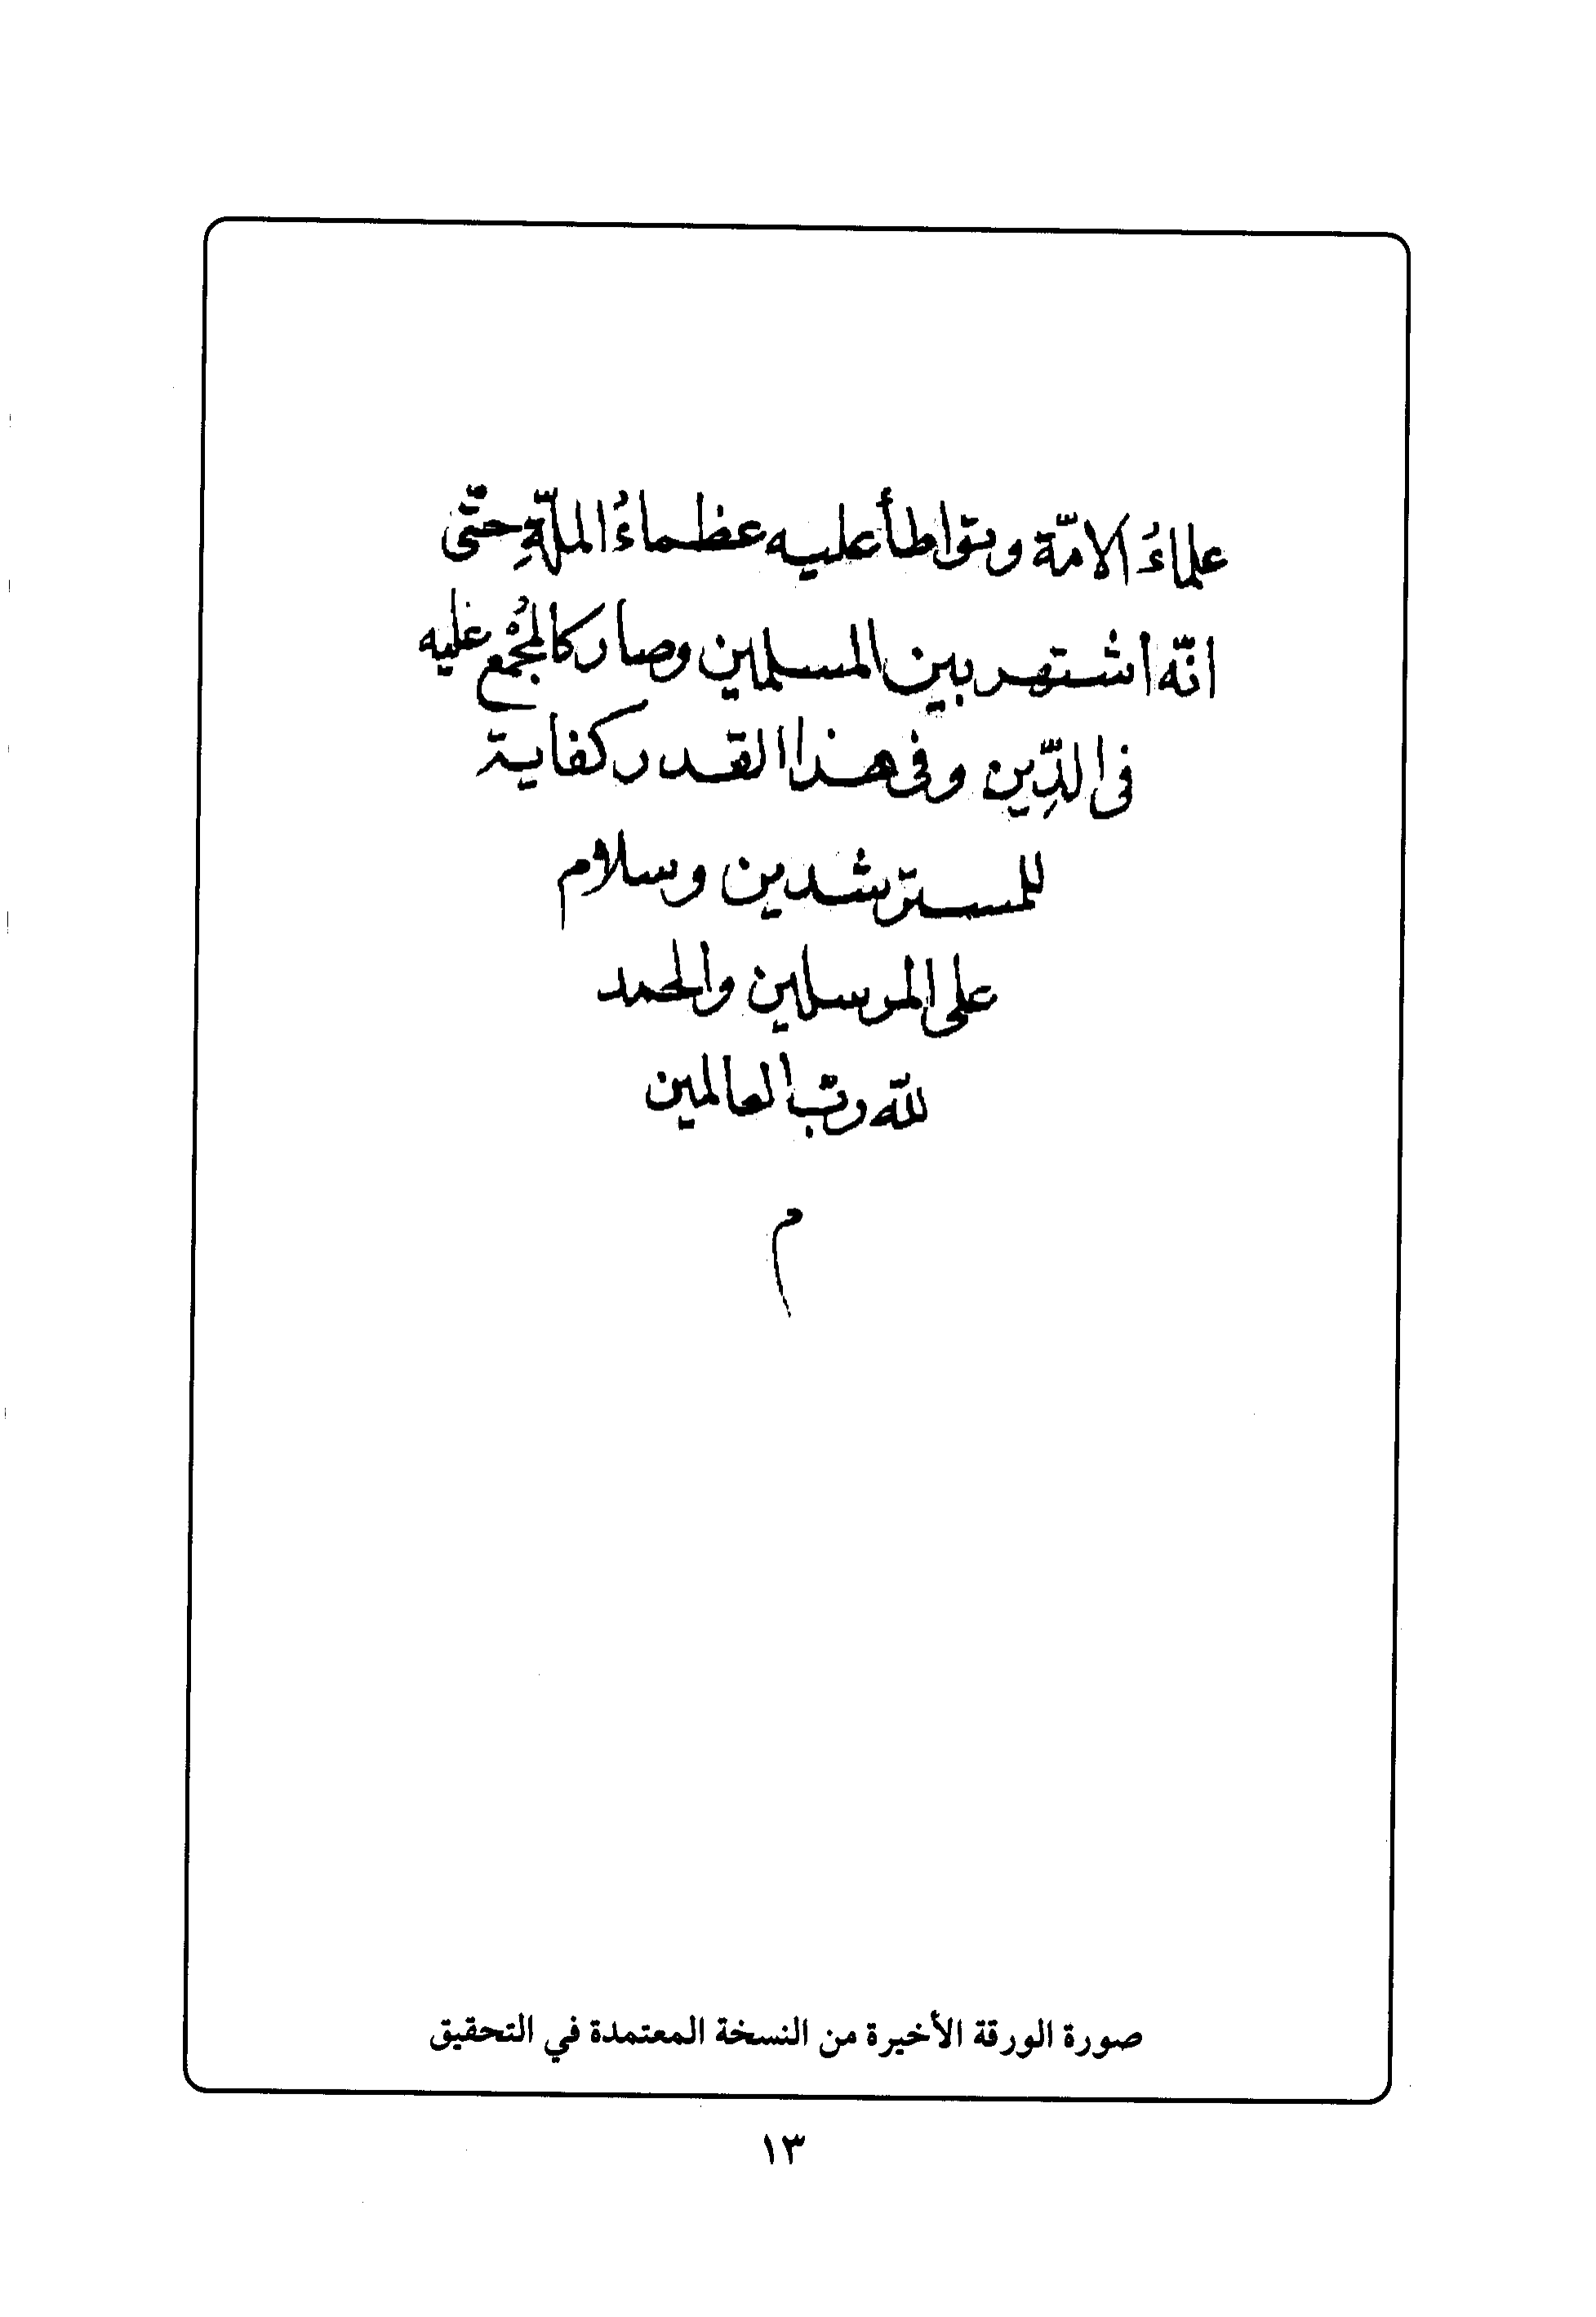 علماءُ الامّة وتواطأ عليه عظماءُ الملّةِ حتّى
انّه اشتهر بين المسلمين وصار كالمُجْمع عليه
فى الدِّين وفى هذا القدر كفاية
للمسترشدين وسلام
على المرسلين والحمد
لله ربّ العالمين
م
صورة الورقة الأخيرة من النسخة المعتمدة في التحقيق
١٣